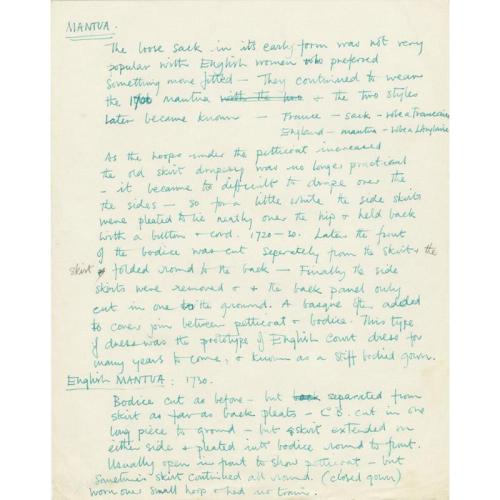 MANTUA.
The loose sack in its early form was not very
popular with English women who preferred
something more fitted - They continued to wear
the 1700 mantua with the hoo + the two styles
Later became known - France - sack - robe a Francaise
England - mantua - robe a L'Anglaise
As the hoops under the petticoat increased
the old skirt drapery was no longer practical
- it became to difficult to drape over the
the sides - so for a little while the side skirts
were pleated to lie neatly over the hip & held back
with a button & cord. 1720-30. Later the front
of the bodice was cut seperately from the skirt & the
skirt folded round to the back - Finally the side
skirts were removed & the back panel only
cut in one to the ground. A basque often added
to cover join between petticoat & bodice. This type
of dress was the prototype of English Court dress for
many years to come, & known as a stiff bodied gown.
English MANTUA: 1730.
Bodice cut as before - but back separated from
skirt as far as back pleats - C.B. cut in one
long piece to ground - but skirt extended on
either side & pleated into bodice round to front.
Usually open in front to show petticoat - but
Sometimes skirt continued all round. (closed gown)
worn over small hoop & had no train.